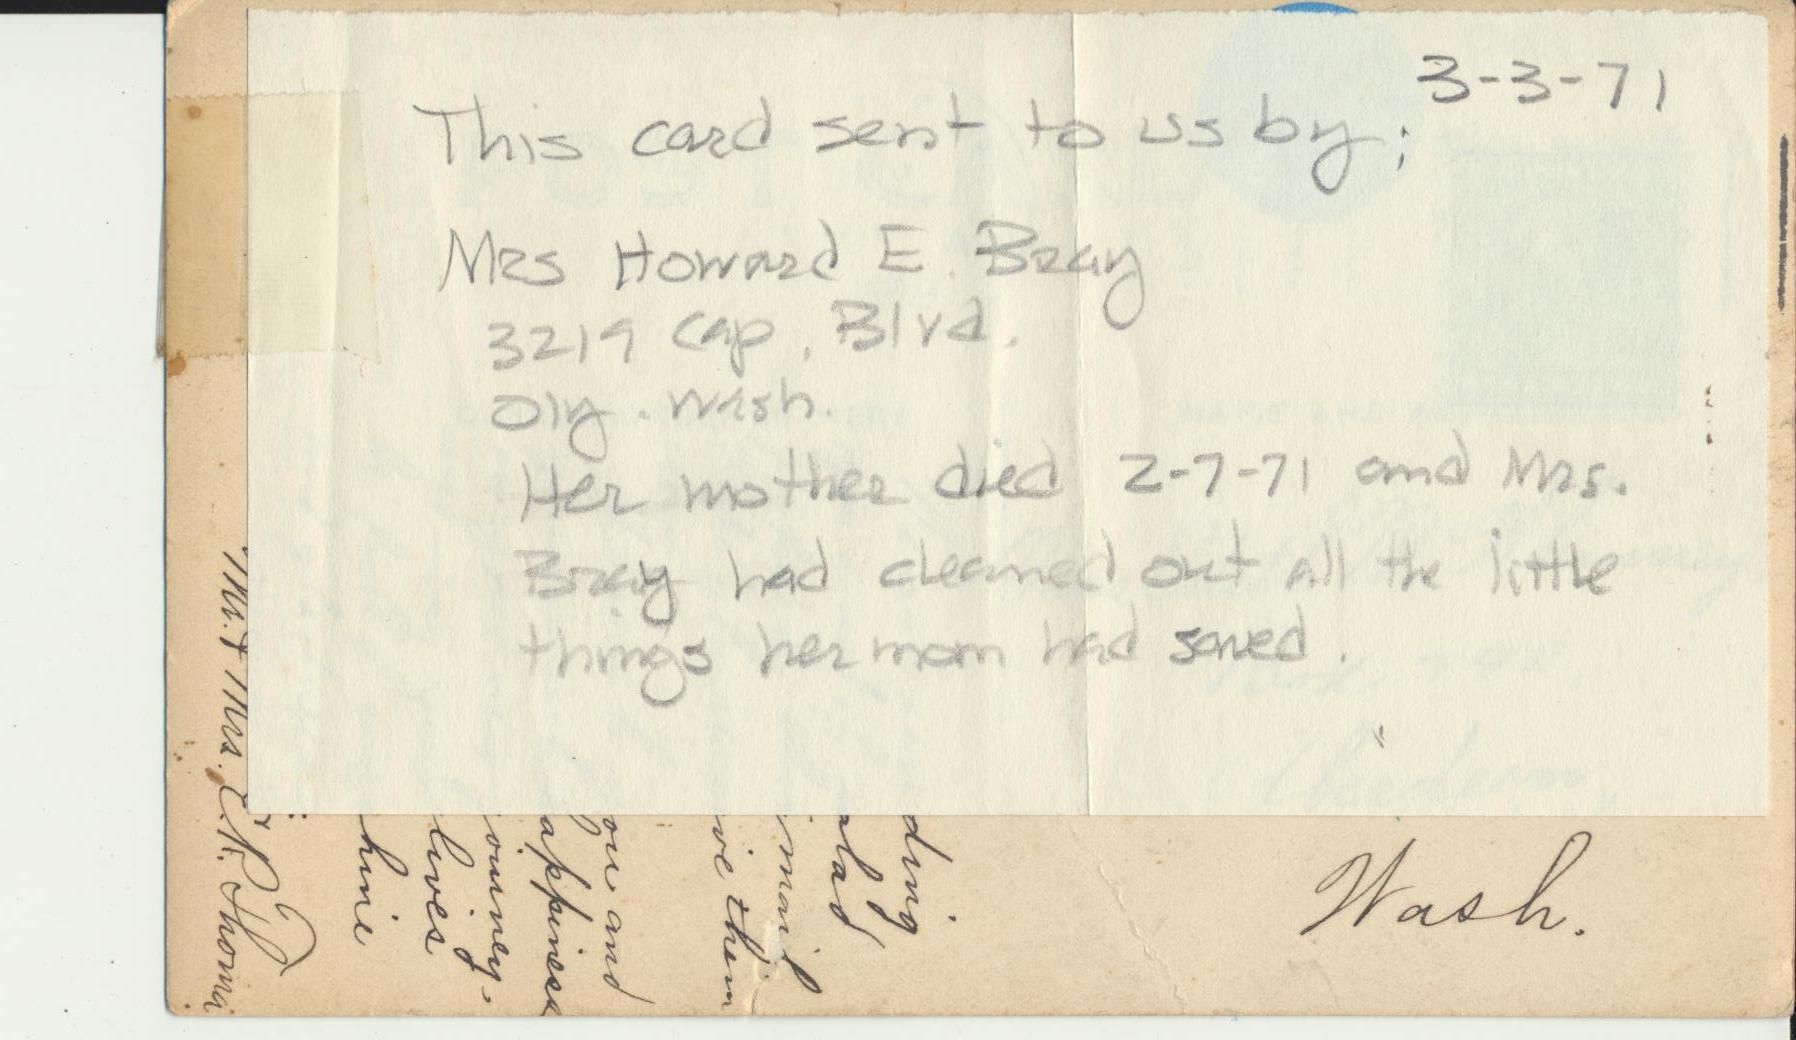 3-3-71
This card sent to us by;
Mrs Howard E. Bray
3219 Cap. Blvd.
Oly. Wash.
Her mother died 2-7-71 and Mrs.
Bray had cleaned out all the little
things her mom had saved.
Wash.
ding
glad
mail
ive them
ou and
appiness
ourney-
lives
hine
Mr. & Mrs.